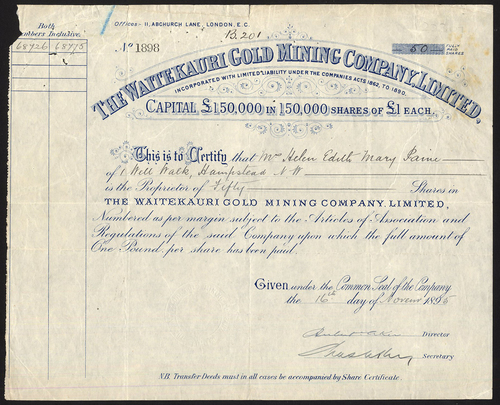 Offices - 11, ABCHURCH LANE, LONDON, E.C.
Both Numbers Inclusive.
68726 68775
B.201
No 1898
50 FULLY PAID SHARES
THE WAITEKAURI GOLD MINING COMPANY, LIMITED.
INCORPORATED WITH LIMITED LIABILITY UNDER THE COMPANIES ACTS 1862, TO 1890.
CAPITAL £150,000 IN 150,000 SHARES OF £1 EACH.
This is to Certify that Mrs Helen Edith Mary Paine
of 1 Well Walk, Hampstead N W
is the Proprietor of Fifty Shares in
THE WAITEKAURI GOLD MINING COMPANY, LIMITED,
Numbered as per margin subject to the Articles of Association and
Regulations of the said Company upon which the full amount of
One Pound per share has been paid.
Given under the Common Seal of the Company
the 16th day of Novr 1895
Director
Secretary
N.B. Transfer Deeds must in all cases be accompanied by Share Certificate.